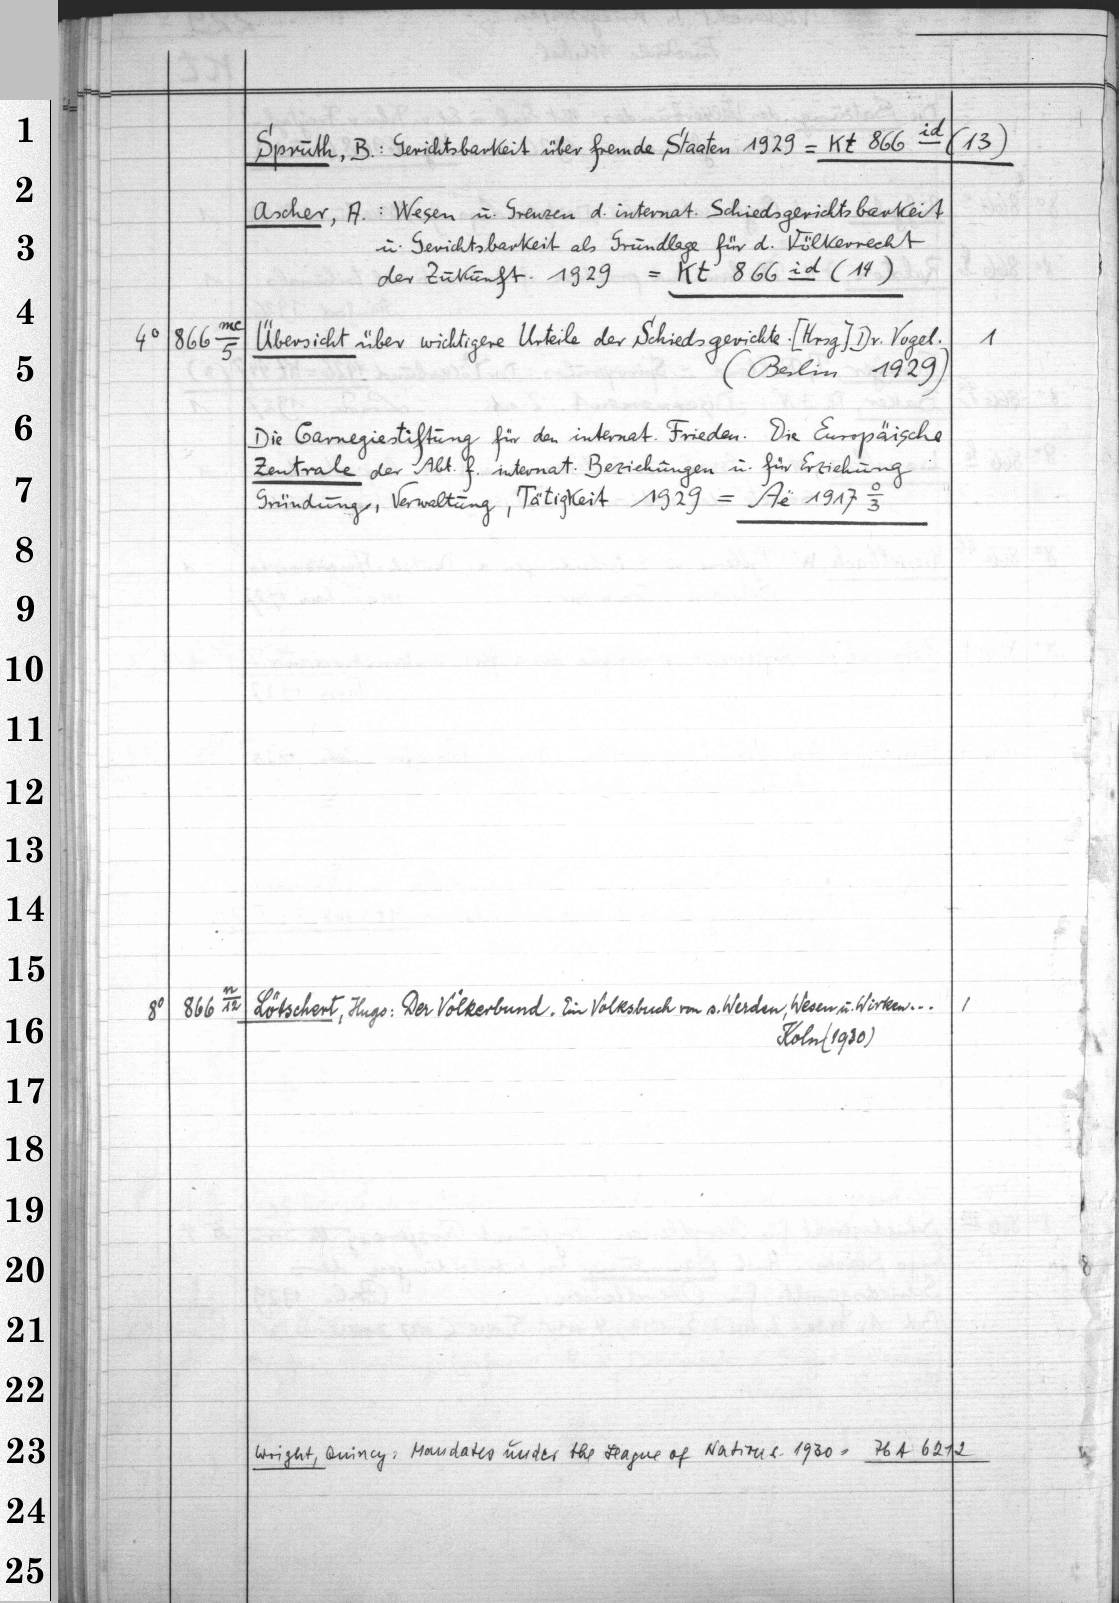 1
Spruth, B.: Gerichtsbarkeit über fremde Staaten 1929 = Kt 866 id (13)
2
Ascher, A.: Wesen u. Grenzen d. internat. Schiedsgerichtsbarkeit
3
u. Gerichtsbarkeit als Grundlage für d. Völkerrecht
der Zukunft. 1929 = Kt 866 id (14)
4
4° 866 mc/5 Übersicht über wichtigere Urteile der Schiedsgerichte. [Hrsg] Dr. Vogel. 1
5
(Berlin 1929)
6
Die Carnegiestiftung für den internat. Frieden. Die Europäische
Zentrale der Abt. f. internat. Beziehungen u. für Erziehung
7
Gründung, Verwaltung, Tätigkeit 1929 = Aë 1917 0/3
8
9
10
11
12
13
14
15
8° 866 n/12 Lötschert, Hugo: Der Völkerbund. Ein Volksbuch von s. Werden, Wesen u. Wirken... 1
16
Köln (1930)
17
18
19
20
21
22
23
Wright, Quincy: Mandates under the League of Nations. 1930 = 76 A 6212
24
25